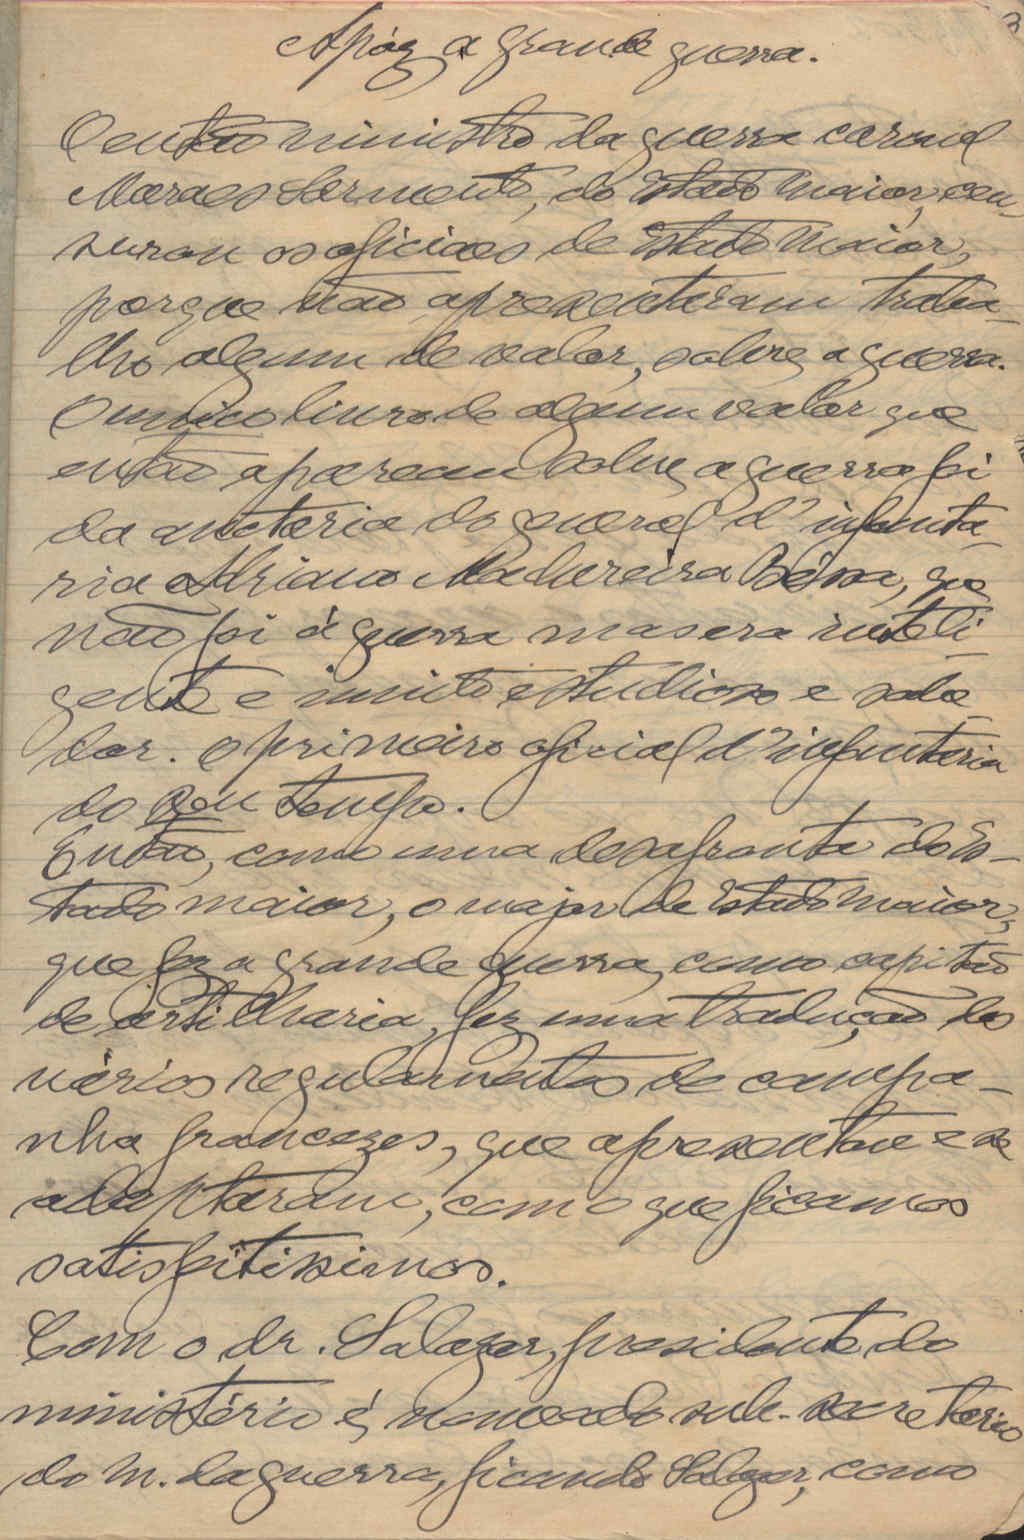 3
Apóz a grande guerra.
O então ministro da guerra coronel
Moraes Sarmento, do Estado Maior, cen-
surou os oficiaes de Estado Maior,
porque não apresentaram traba-
lho algum de valor, sobre a guerra.
O unico livro de algum valor que
então apareceu sobre a guerra foi
da auctoria do general d'infanta-
ria Adriano Madureira Beça, que
não foi á guerra mas era inteli-
gente e muito estudioso e sabe-
dor. O primeiro oficial d'infanteria
do seu tempo.
Então, como uma desafronta do Es-
tado maior, o major de Estado Maior,
que fez a grande guerra, como capitão
de artilharia, fez uma tradução dos
vários regulamentos de campa-
nha francezes, que apresentou e se
adoptaram, com o que ficamos
satisfeitissimos.
Com o dr. Salazar, presidente do
ministério é nomeado sub-secretario
do M. da guerra, ficando Salazar, como